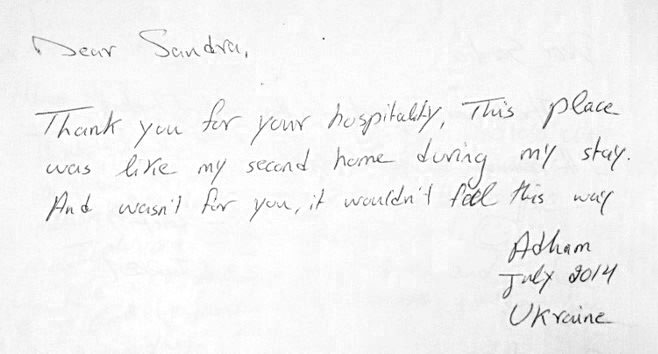 Dear Sandra,
Thank you for your hospitality, This place
was like my second home during my stay.
And wasn't for you, it wouldn't feel this way
Adham
July 2014
Ukraine